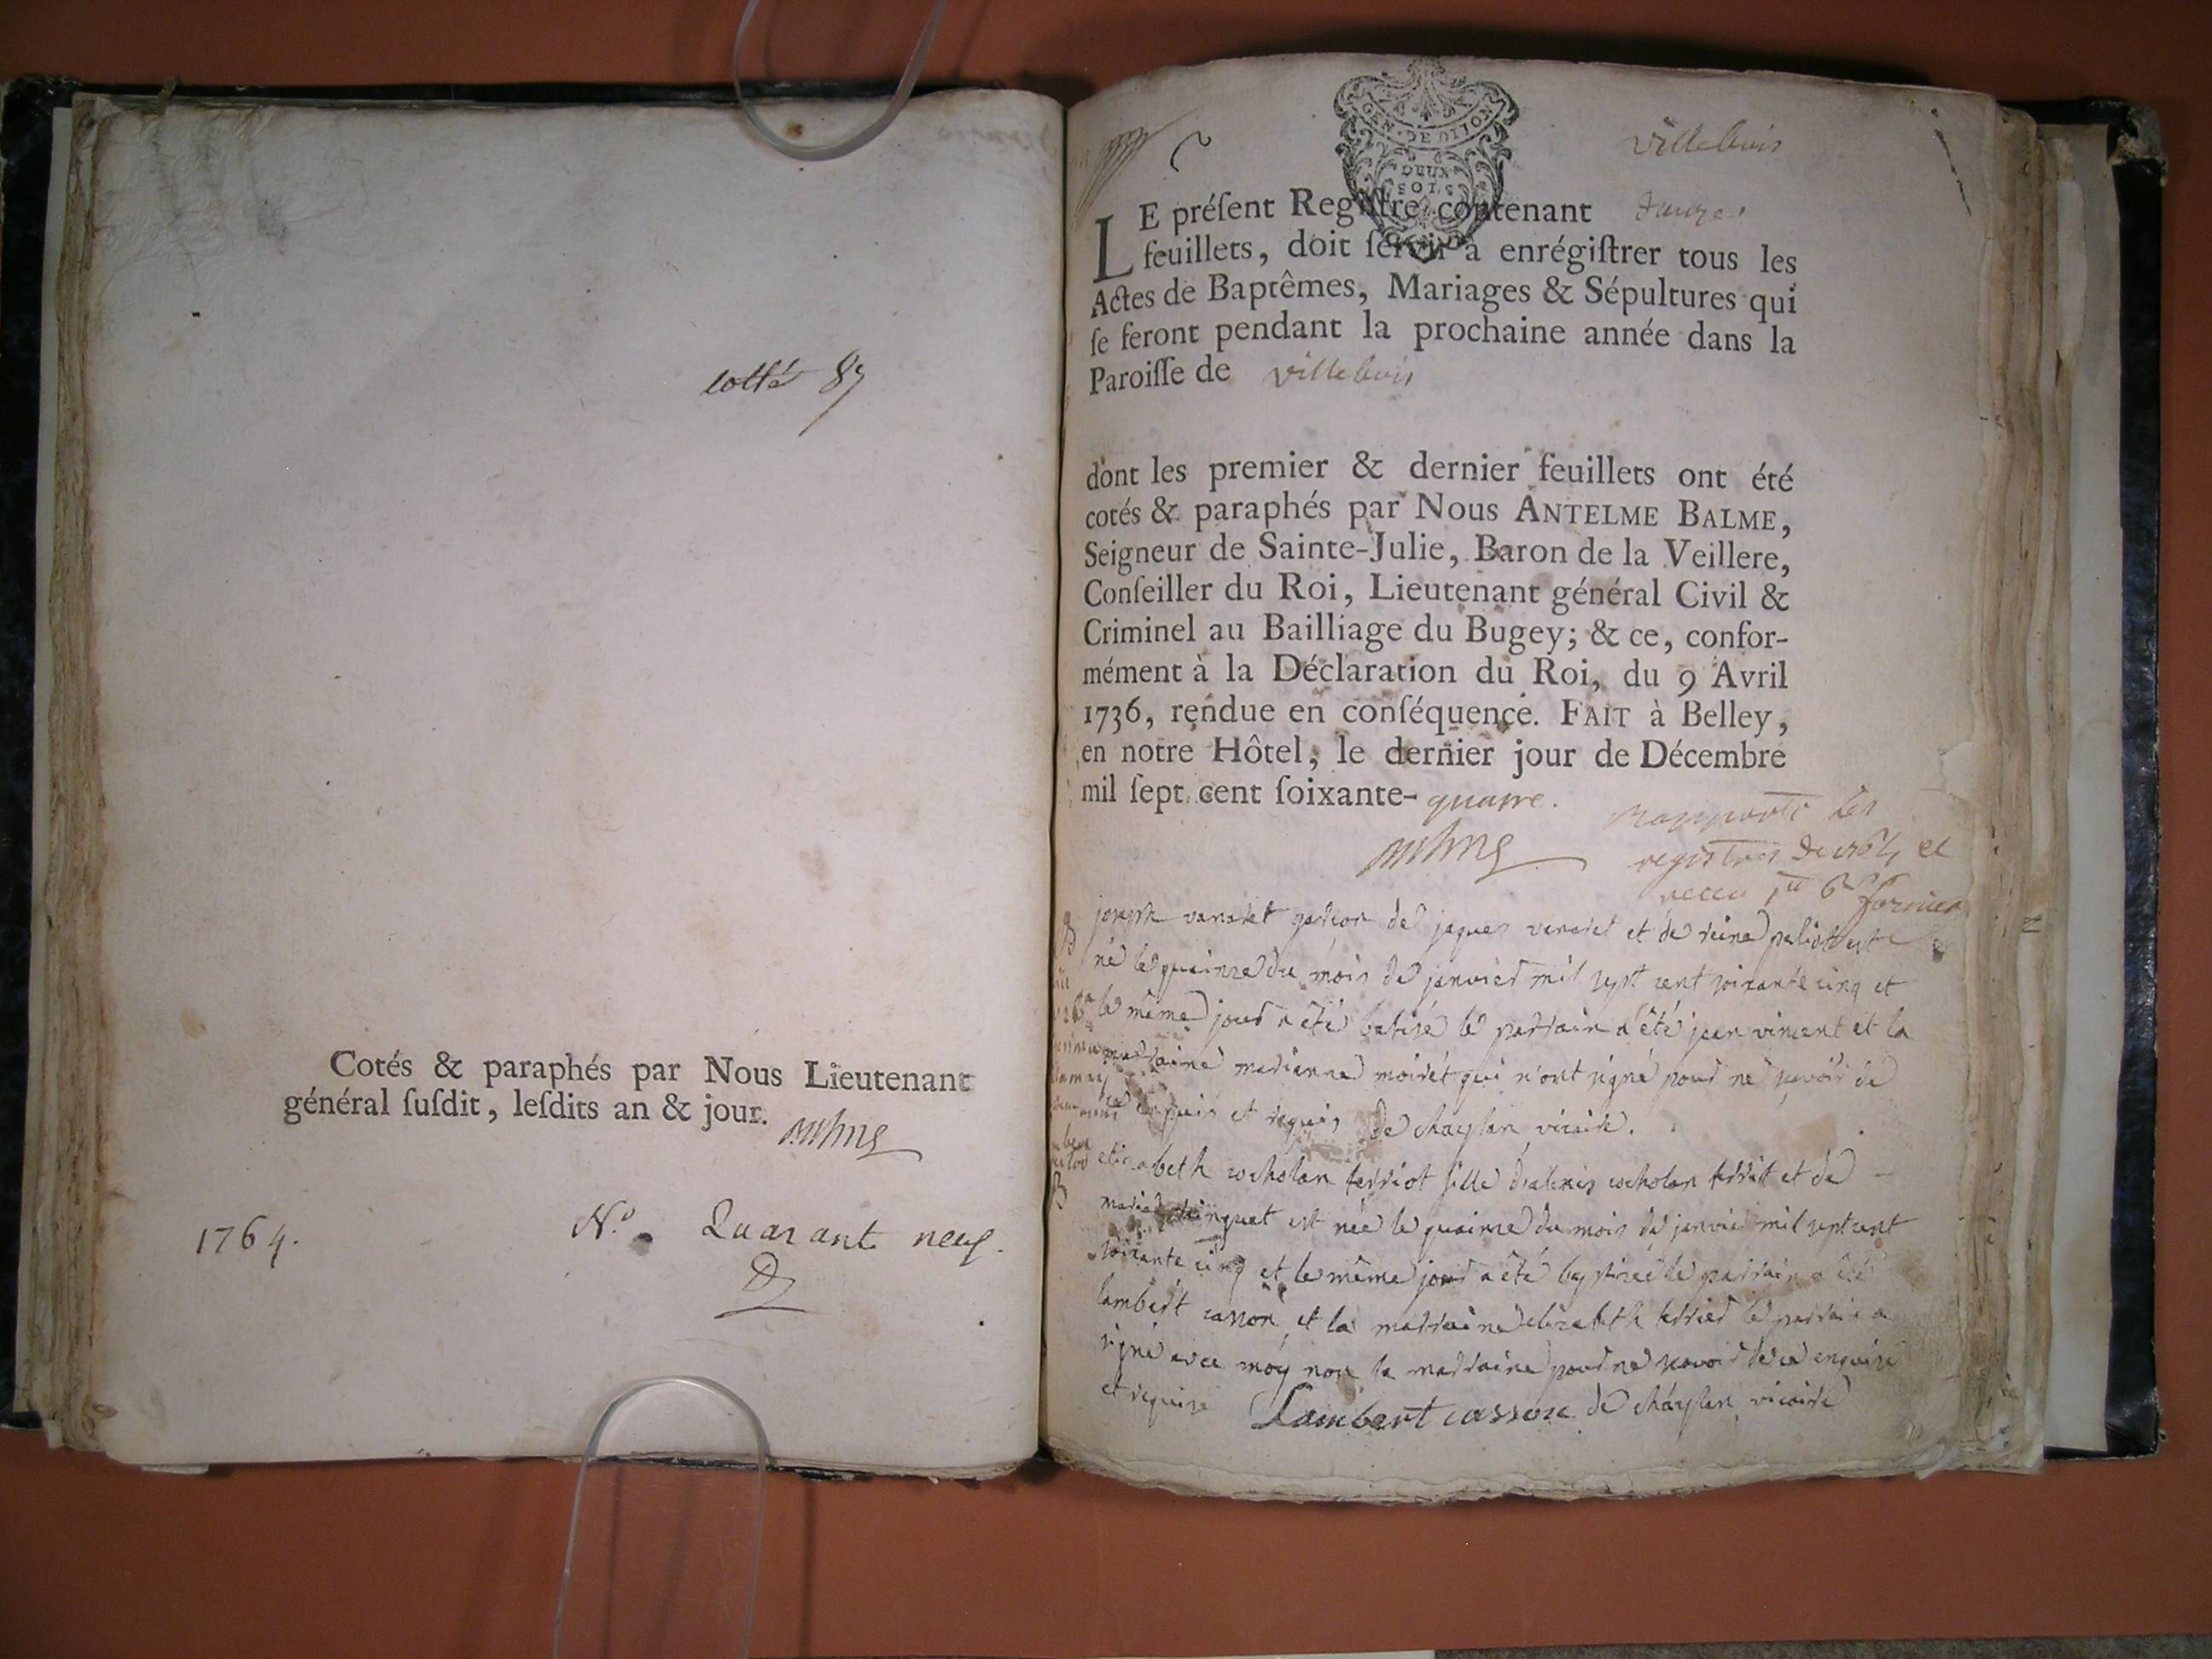 cotté 87
Cotés & paraphés par Nous Lieutenant
général suſdit, leſdits an & jour.
1764.
N.º Quarante neuf.
GEN. DE DIJON
DEUX
SOLS
villebois
LE préſent Regiſtre contenant
feuillets, doit ſervir à enrégiſtrer tous les
Actes de Baptêmes, Mariages & Sépultures qui
ſe feront pendant la prochaine année dans la
Paroiſſe de villebois
dont les premier & dernier feuillets ont été
cotés & paraphés par Nous ANTELME BALME,
Seigneur de Sainte-Julie, Baron de la Veillere,
Conſeiller du Roi, Lieutenant général Civil &
Criminel au Bailliage du Bugey; & ce, confor-
mément à la Déclaration du Roi, du 9 Avril
1736, rendue en conſéquence. FAIT à Belley,
en notre Hôtel, le dernier jour de Décembre
mil ſept cent ſoixante-quatre.
rapporté les
registres de 1764 et
receu
joseph vararet garcon de jaques vararet et de reine est
né le quinze du mois de janvier mil sept cent soixante cinq et
le même jour a été batisé le parrain a été jean vincent et la
marraine marianne moirét qui n'ont signé pour ne savoir de
ce enquis et requis de chaylan vicaire.
elizabeth cocholan terriot fille cocholan et de
marie est née le quinze du mois de janvier mil sept cent
soixante cinq et le même jour a été baptizée le parrain a été
lambert casson et la marraine elizabeth terrier le parrain a
signé avec moy non la marraine pour ne savoir de ce enquise
et requise Lambert cassons de chaylan vicaire